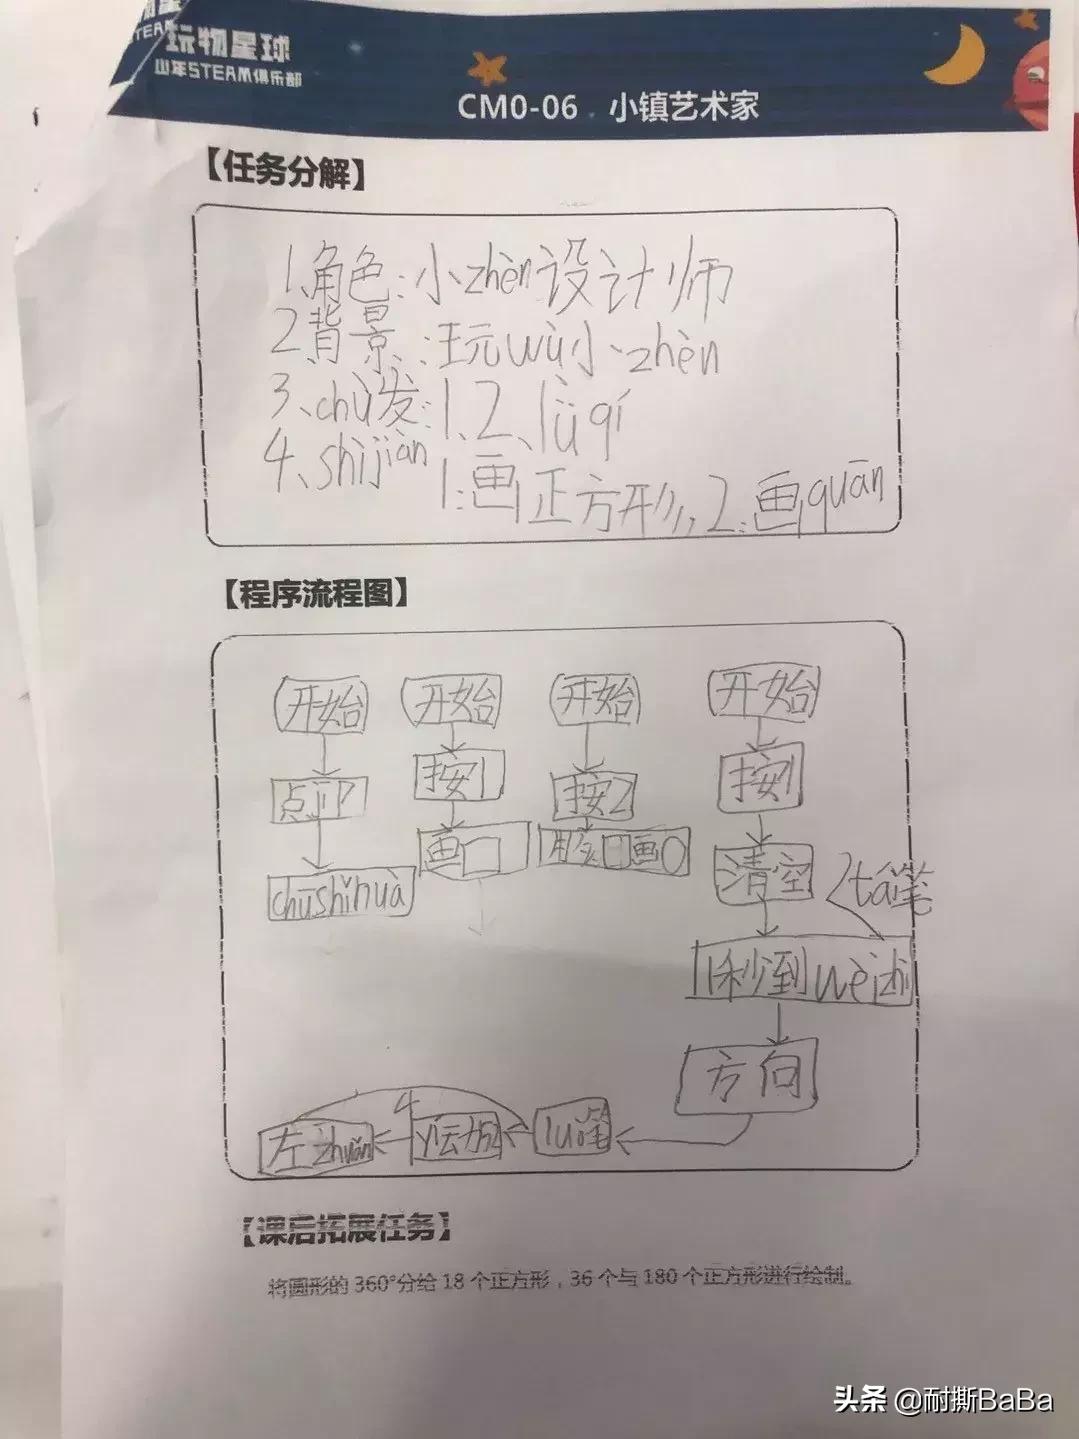 玩物星球
少年STEAM俱乐部
CM0-06 . 小镇艺术家
【任务分解】
1.角色:小zhèn设计师
2背景:玩wù小zhèn
3、chù发:1、2、lǜqí
4、shìjiàn
1.画正方形,2.画quān
【程序流程图】
开始 开始 开始 开始
点 按1 按2 按1
chūshǐhuà 画□ 用 画○ 清空
tái笔
1秒到wèizhi
方向
左zhuǎn 4 luò笔
【课后拓展任务】
将圆形的 360°分给 18 个正方形，36 个与 180 个正方形进行绘制。
头条 @耐撕BaBa